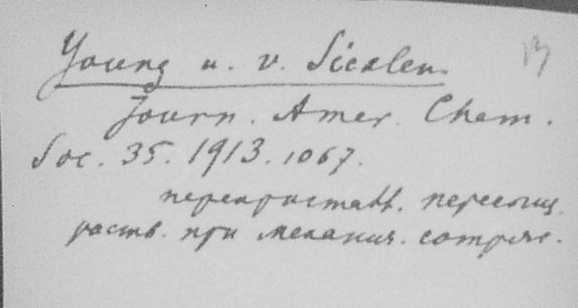 Young u. v. Sicklen.
Journ. Amer. Chem.
Soc. 35. 1913. 1067.
перекристалл. пересыщ.
раств. при механич. сотряс.